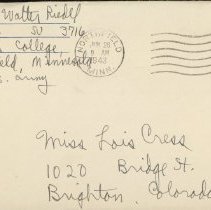 Walter Riedel
SU 3716
College,
Minnesota
Army
NORTHFIELD
JUN 28
AM
1943
MINN.
Miss Lois Cress
1020 Bridge St.
Brighton, Colorado